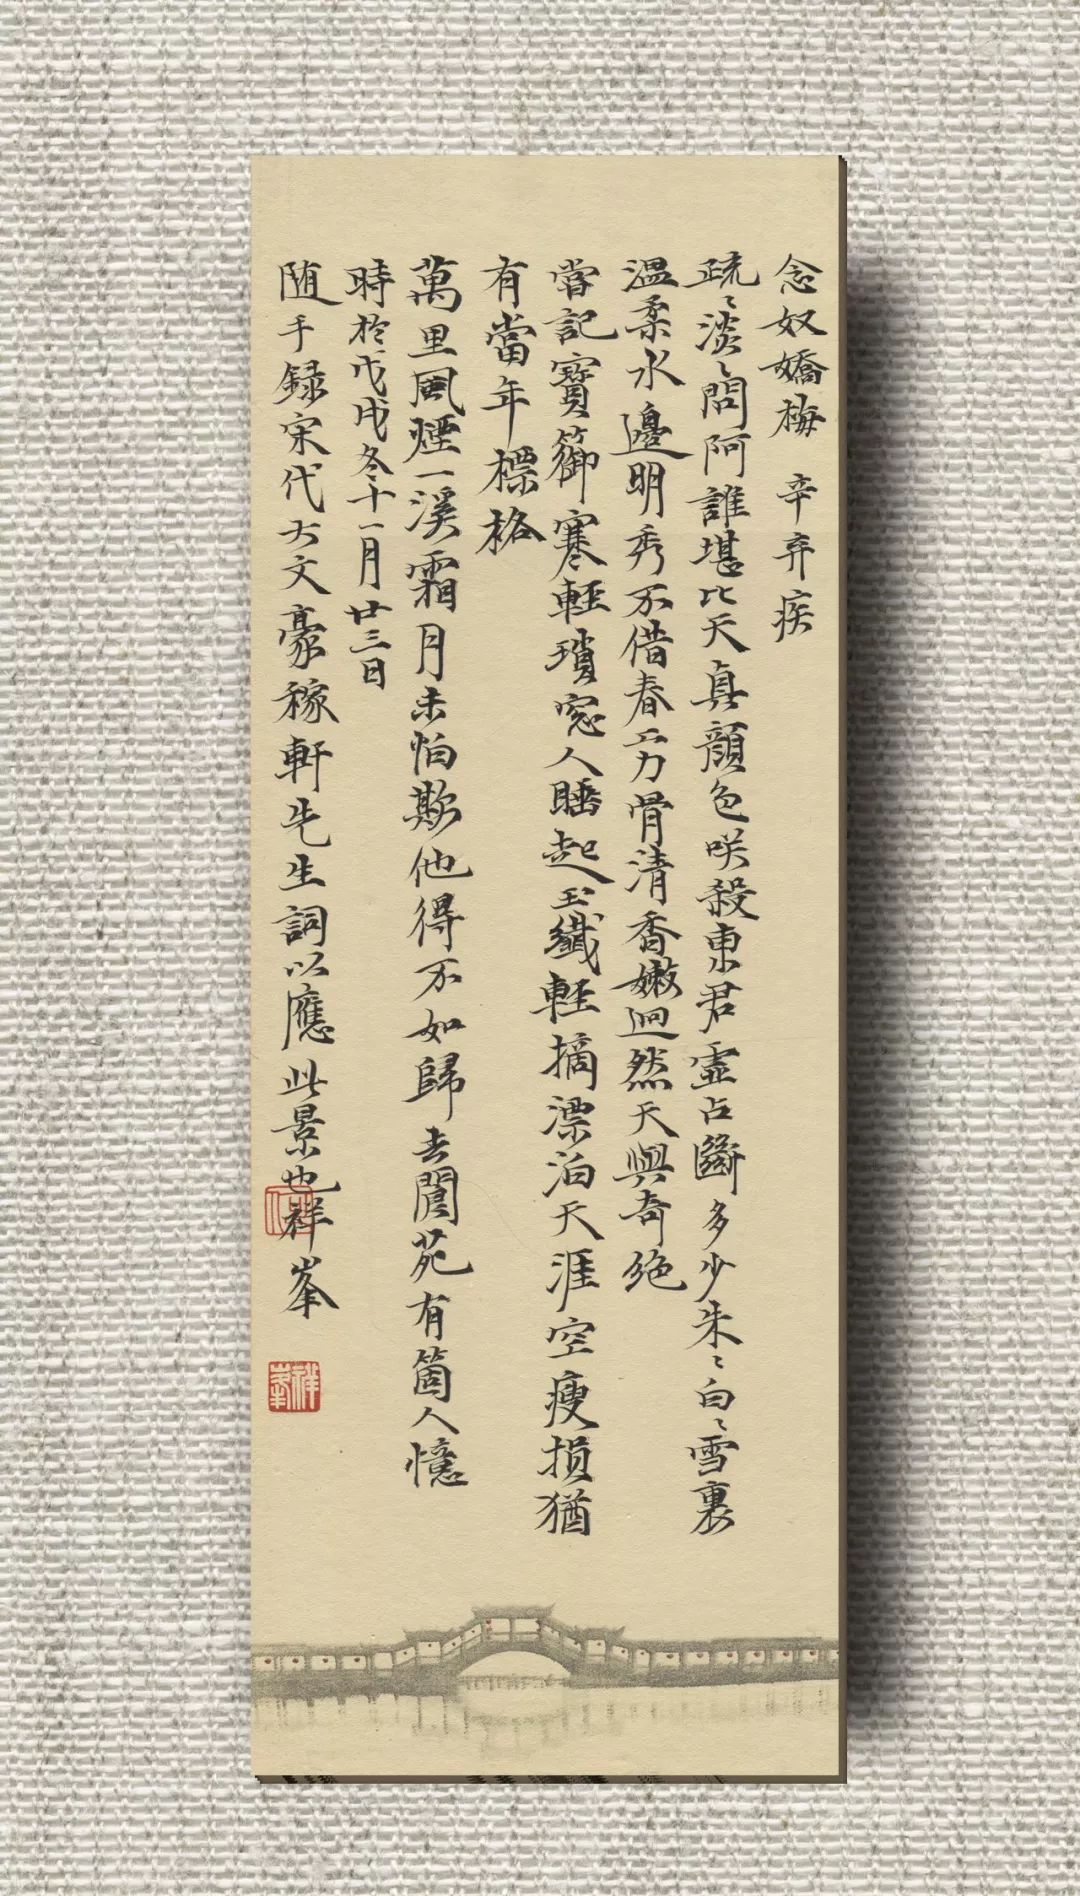 念奴嬌梅 辛弃疾
疏〻淡〻問阿誰堪比天真顏色咲殺東君虛占斷多少朱〻白〻雪裏
溫柔水邊明秀不借春工力骨清香嫩迥然天與奇絕
嘗記寶籞寒輕瑣窓人睡起玉纖輕摘漂泊天涯空瘦損猶
有當年標格
萬里風煙一溪霜月未怕欺他得不如歸去閬苑有箇人憶
時於戊戌冬十一月廿三日
随手録宋代大文豪稼軒先生詞以應此景也祥峯
祥峯